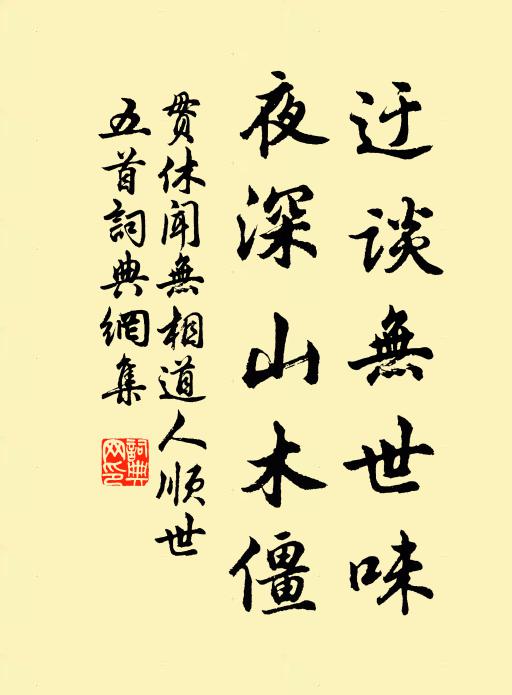 迂谈無世味
夜深山木僵
贯休闻無相道人顺世
五首詞典網集
詞典
网印